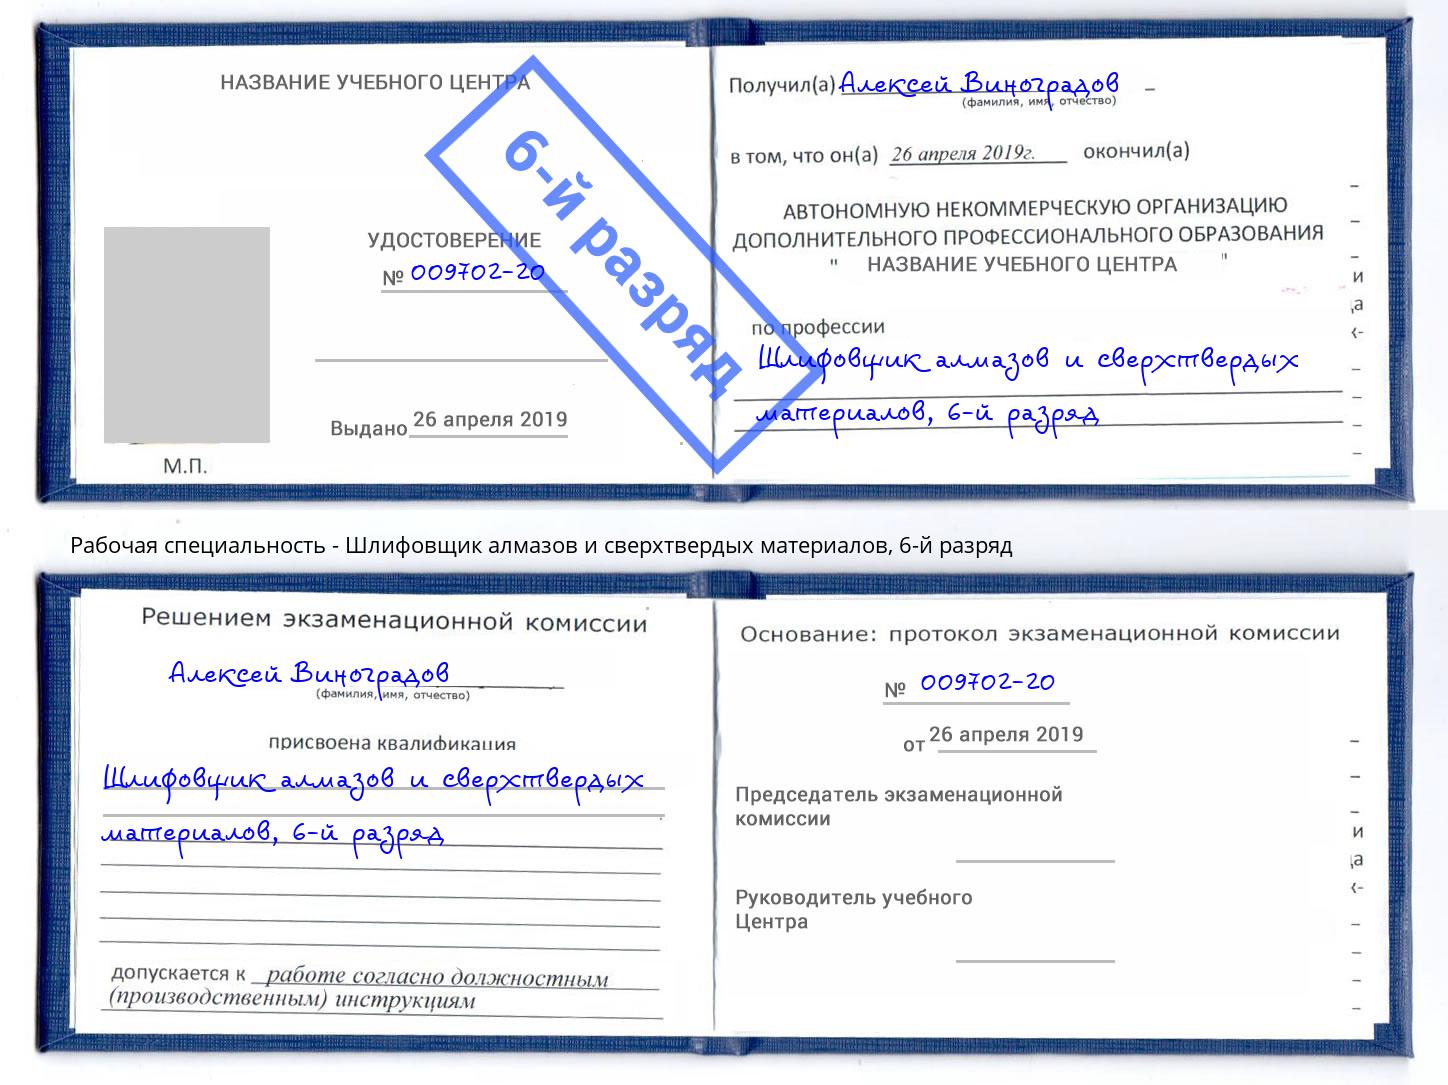 НАЗВАНИЕ УЧЕБНОГО ЦЕНТРА
6-й разряд
УДОСТОВЕРЕНИЕ
№ 009702-20
Выдано 26 апреля 2019
М.П.
Получил(а) Алексей Виноградов
(фамилия, имя, отчество)
в том, что он(а) 26 апреля 2019г. окончил(а)
АВТОНОМНУЮ НЕКОММЕРЧЕСКУЮ ОРГАНИЗАЦИЮ
ДОПОЛНИТЕЛЬНОГО ПРОФЕССИОНАЛЬНОГО ОБРАЗОВАНИЯ
" НАЗВАНИЕ УЧЕБНОГО ЦЕНТРА "
по профессии
Шлифовщик алмазов и сверхтвердых
материалов, 6-й разряд
Рабочая специальность - Шлифовщик алмазов и сверхтвердых материалов, 6-й разряд
Решением экзаменационной комиссии
Алексей Виноградов
(фамилия, имя, отчество)
присвоена квалификация
Шлифовщик алмазов и сверхтвердых
материалов, 6-й разряд
допускается к работе согласно должностным
(производственным) инструкциям
Основание: протокол экзаменационной комиссии
№ 009702-20
от 26 апреля 2019
Председатель экзаменационной
комиссии
Руководитель учебного
Центра